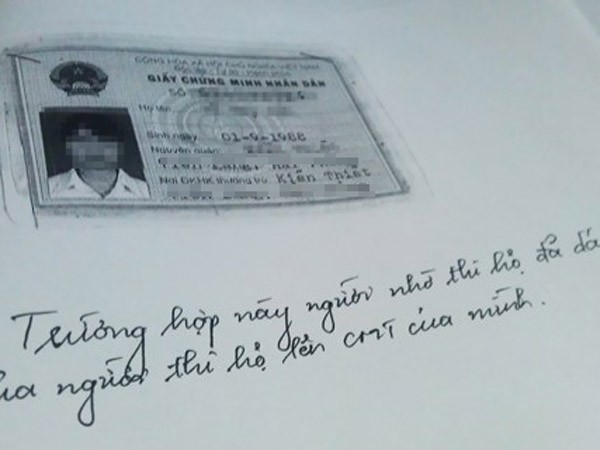 CỘNG HÒA XÃ HỘI CHỦ NGHĨA VIỆT NAM
GIẤY CHỨNG MINH NHÂN DÂN
SỐ
Họ tên
Sinh ngày 01-9-1988
Nguyên quán
Nơi ĐKHK thường trú Kiến Thiết
Trường hợp này người nhờ thi hộ đã dá
ủa người thi hộ lên CMT của mình.